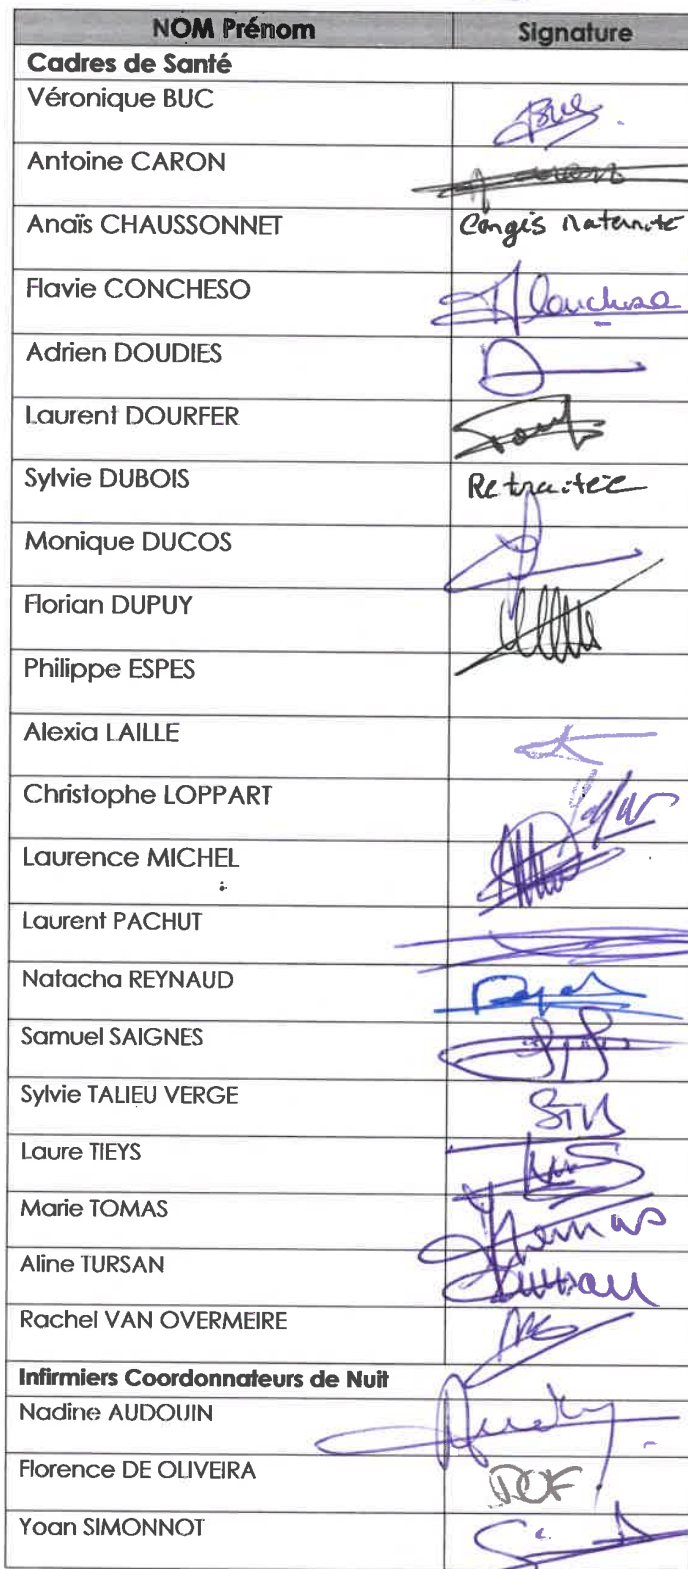 NOM Prénom Signature
Cadres de Santé
Véronique BUC Buc
Antoine CARON
Anaïs CHAUSSONNET Congés Maternité
Flavie CONCHESO
Adrien DOUDIES
Laurent DOURFER
Sylvie DUBOIS Retraitée
Monique DUCOS
Florian DUPUY
Philippe ESPES
Alexia LAILLE
Christophe LOPPART
Laurence MICHEL
Laurent PACHUT
Natacha REYNAUD
Samuel SAIGNES
Sylvie TALIEU VERGE
Laure TIEYS
Marie TOMAS
Aline TURSAN
Rachel VAN OVERMEIRE
Infirmiers Coordonnateurs de Nuit
Nadine AUDOUIN
Florence DE OLIVEIRA DOF
Yoan SIMONNOT